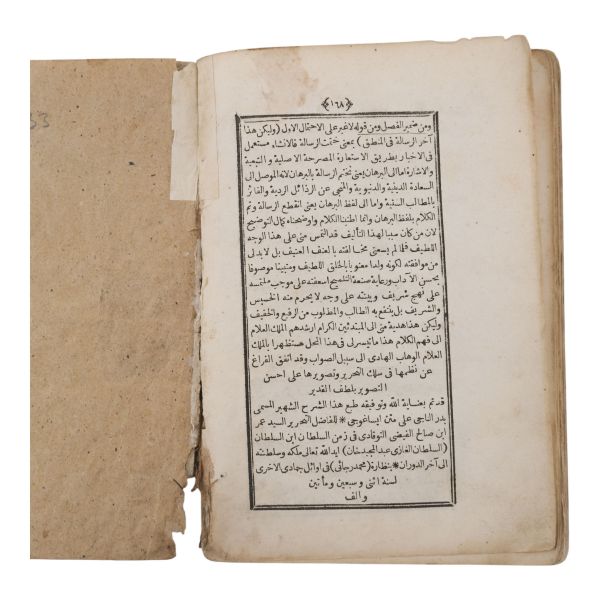 33
﴿١٦٨﴾
ومن ضمير الفصل ومن قوله لا غير على الاحتمال الاول (وليكن هذا
آخر الرسالة فى المنطق) بمعنى ختمت الرسالة فالانشاء مستعمل
فى الاخبار بطريق الاستعارة المصرحة الاصلية و التبعية
والاشارة اما الى البرهان يعنى نختم الرسالة بالبرهان لانه الموصل الى
السعادة الدينية والدنيوية والمنجى عن الرذائل الردية والفائز
بالمطالب السنية واما الى لفظ البرهان يعنى انقطع الرسالة وتم
الكلام بلفظ البرهان وانما اطنبنا الكلام واوضحناه كمال التوضيح
لان من كان سببا لهذا التأليف قد التمس منى على هذا الوجه
اللطيف فلما لم يسعنى مخالفته بالعنف العنيف بل لابد لى
من موافقته لكونه ولدا معنويا بالخلق اللطيف ومتيمنا موصوفا
بحسن الآداب ورعاية صنعة التلميح اسعفته على موجب ملتمسه
على نهج شريف وبينته على وجه لا يحرم منه الخسيس
والشريف بل ينتفع به الطالب والمطلوب من الرفيع والخفيف
وليكن هذا هدية منى الى المبتدئين الكرام ارشدهم الملك العلام
الى فهم الكلام هذا ما تيسر لى فى هذا المحل مستظهرا بالملك
العلام الوهاب الهادى الى سبيل الصواب وقد اتفق الفراغ
عن نظمها فى سلك التحرير وتصويرها على احسن
التصوير بلطف القدير
قد تم بعناية الله وتوفيقه طبع هذا الشرح الشهير المسمى
بدر الناجى على متن ايساغوجى * للفاضل التحرير السيد عمر
ابن صالح الفيضى التوقادى فى زمن السلطان ابن السلطان
(السلطان الغازى عبد المجيد خان) ايد الله تعالى ملكه وسلطنته
الى آخر الدوران * بنظارة (محمد رجائى) فى اوائل جمادى الاخرى
لسنة اثنى وسبعين ومأتين
والف